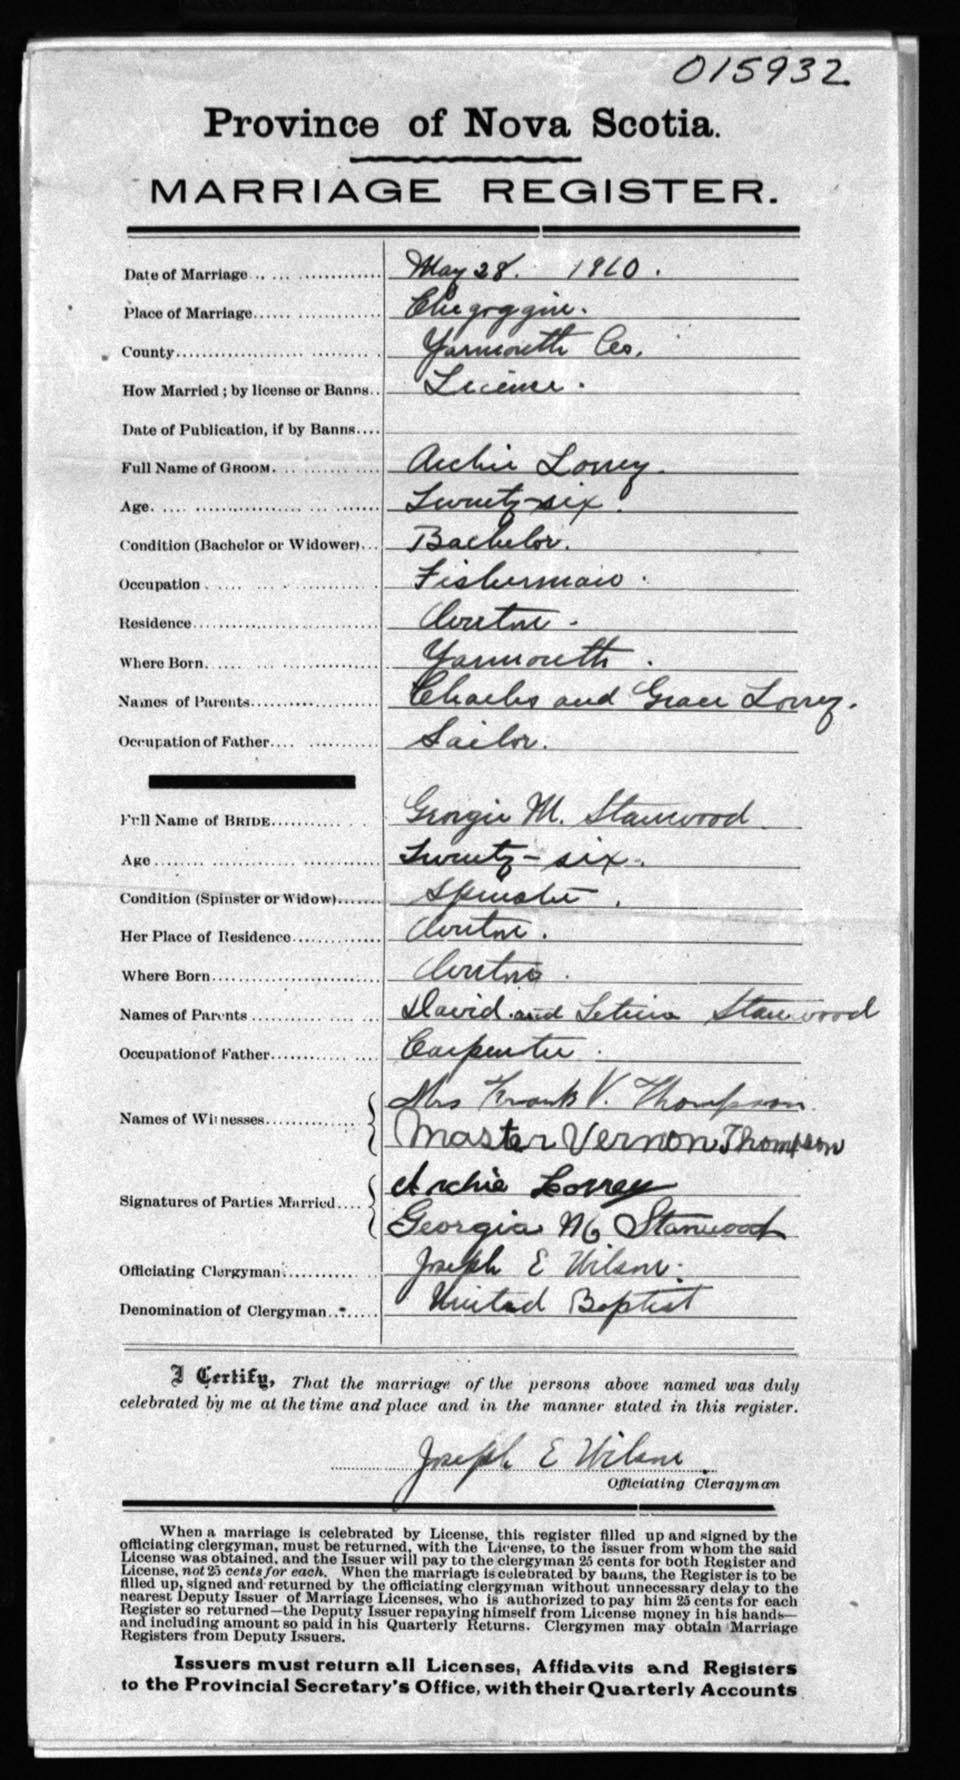 015932
Province of Nova Scotia.
MARRIAGE REGISTER.
Date of Marriage May 28. 1910.
Place of Marriage Chegoggin.
County Yarmouth Co.
How Married; by license or Banns License.
Date of Publication, if by Banns
Full Name of GROOM. Archie Lorrey.
Age. Twenty-six.
Condition (Bachelor or Widower) Bachelor.
Occupation Fisherman.
Residence
Where Born Yarmouth.
Names of Parents Charles and Grace Lorrey.
Occupation of Father Sailor.
Full Name of BRIDE Georgie M. Stanwood
Age Twenty-six.
Condition (Spinster or Widow) Spinster.
Her Place of Residence
Where Born
Names of Parents David and Leticia Stanwood
Occupation of Father Carpenter.
Names of Witnesses Mrs Frank V. Thompson.
Master Vernon Thompson
Signatures of Parties Married Archie Lorrey
Georgia M Stanwood
Officiating Clergyman Joseph E Wilson.
Denomination of Clergyman United Baptist
I Certify, That the marriage of the persons above named was duly
celebrated by me at the time and place and in the manner stated in this register.
Joseph E Wilson
Officiating Clergyman
When a marriage is celebrated by License, this register filled up and signed by the
officiating clergyman, must be returned, with the License, to the issuer from whom the said
License was obtained, and the Issuer will pay to the clergyman 25 cents for both Register and
License, not 25 cents for each. When the marriage is celebrated by banns, the Register is to be
filled up, signed and returned by the officiating clergyman without unnecessary delay to the
nearest Deputy Issuer of Marriage Licenses, who is authorized to pay him 25 cents for each
Register so returned—the Deputy Issuer repaying himself from License money in his hands—
and including amount so paid in his Quarterly Returns. Clergymen may obtain Marriage
Registers from Deputy Issuers.
Issuers must return all Licenses, Affidavits and Registers
to the Provincial Secretary's Office, with their Quarterly Accounts